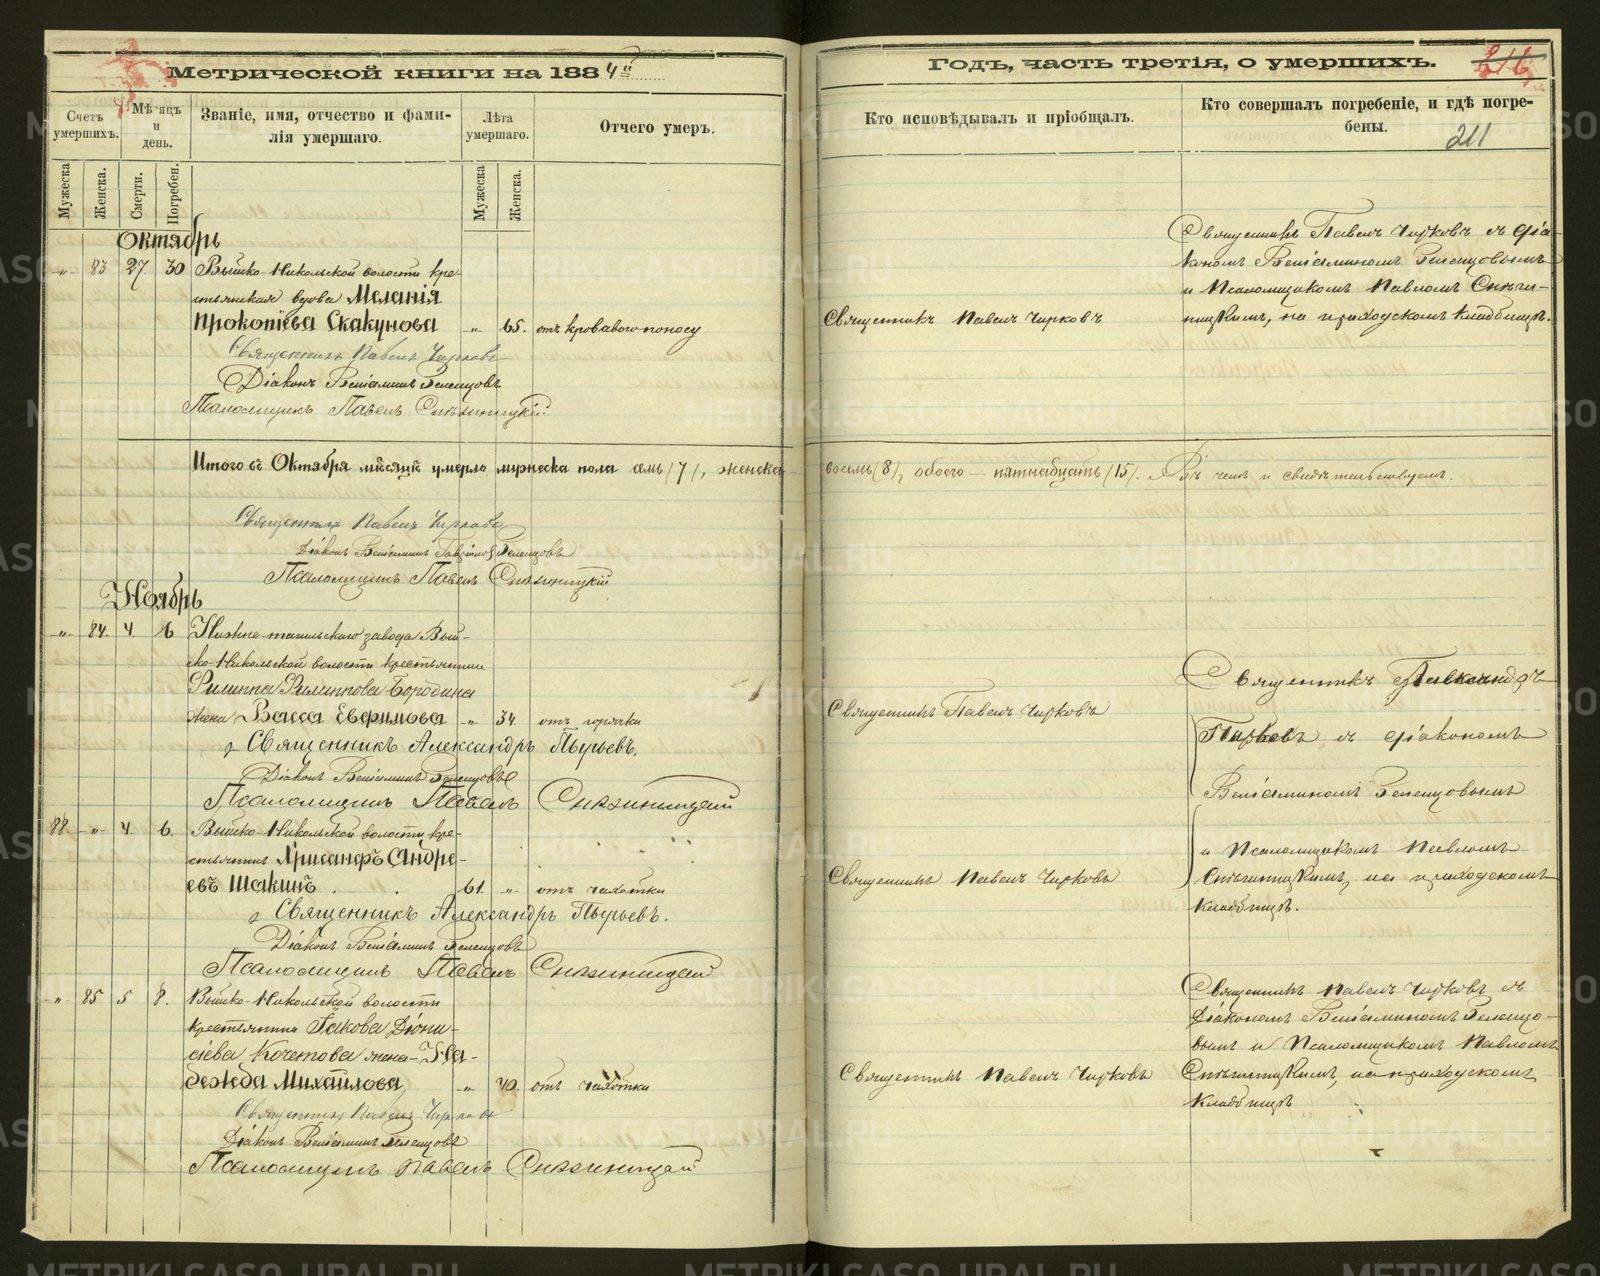 Метрической книги на 1884й
Годъ, часть третія, о умершихъ.
216
Счетъ умершихъ.
Мѣсяцъ и день.
Званіе, имя, отчество и фами-
лія умершаго.
Лѣта умершаго.
Отчего умеръ.
Кто исповѣдывалъ и пріобщалъ.
Кто совершалъ погребеніе, и гдѣ погре-
бены.
211
Мужеска
Женска.
Смерти.
Погребен.
Мужеска
Женска.
Октябрь
„ 83 27. 30 Выйско-Никольской волости кре-
стьянская вдова Меланія
Прокопіева Скакунова „ 65. отъ кроваваго поносу
Священникъ Павелъ Чирковъ
Діаконъ Веніаминъ
Псаломщикъ Павелъ
Священникъ Павелъ Чирковъ
Священникъ Павелъ Чирковъ съ діа-
кономъ Веніаминомъ
и Псаломщикомъ Павломъ
на приходскомъ кладбищѣ.
Итого въ Октябрѣ мѣсяцѣ умерло мужеска пола семь /7/, женска
восемь /8/, обоего – пятнадцать /15/. Въ чемъ и свидѣтельствуемъ.
Священникъ Павелъ Чирковъ
Діаконъ Веніаминъ
Псаломщикъ Павелъ
Ноябрь
„ 84. 4. 6 Нижне-тагильскаго завода Вый-
ско-Никольской волости крестьянина
Филиппа Филиппова Бородина
жена Васса Евфимова „ 34. отъ горячки
Священникъ Александръ Пырьевъ.
Діаконъ Веніаминъ
Псаломщикъ Павелъ
Священникъ Павелъ Чирковъ
88. „ 4. 6. Выйско-Никольской волости кре-
стьянинъ Хрисанфъ Андре-
евъ Шакинъ 61. „ отъ чахотки
Священникъ Александръ Пырьевъ.
Діаконъ Веніаминъ
Псаломщикъ Павелъ
Священникъ Павелъ Чирковъ
Священникъ Александръ
Пырьевъ съ діакономъ
Веніаминомъ
и Псаломщикомъ Павломъ
на приходскомъ
кладбищѣ.
„ 85 5 8. Выйско-Никольской волости
крестьянина Іакова Діони-
сіева Кочетова жена – На-
дежда Михайлова „ 40. отъ чахотки
Священникъ Павелъ Чирковъ
Діаконъ Веніаминъ
Псаломщикъ Павелъ
Священникъ Павелъ Чирковъ
Священникъ Павелъ Чирковъ съ
Діакономъ Веніаминомъ
и Псаломщикомъ Павломъ
на приходскомъ
кладбищѣ
METRIKI.GASO-URAL.RU